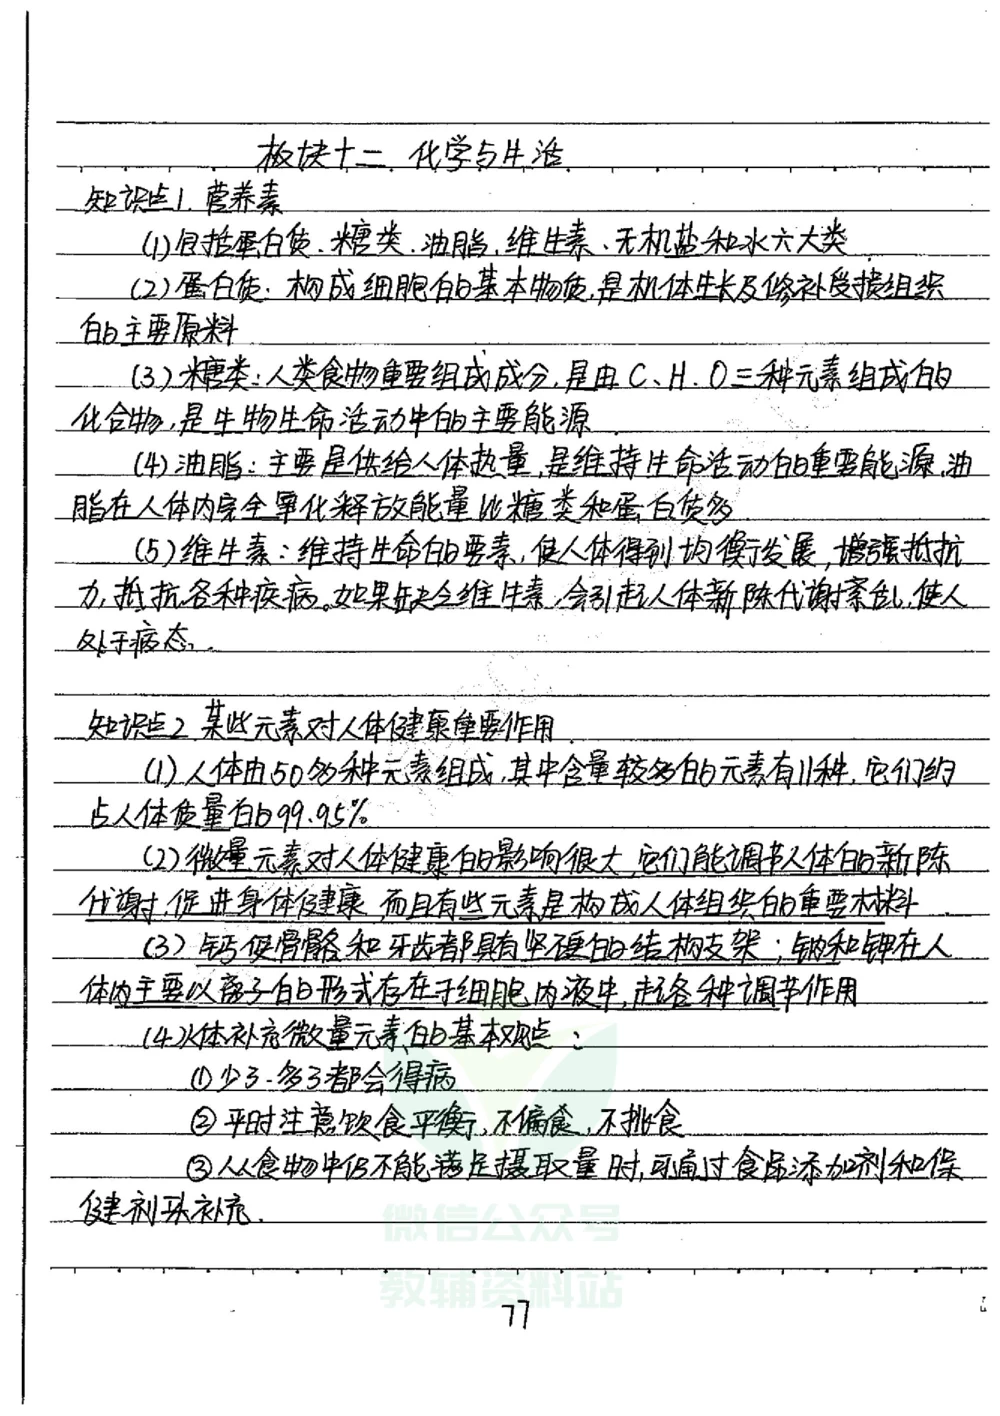 板块十二 化学与生活
知识点1. 营养素
(1)包括蛋白质、糖类、油脂、维生素、无机盐和水六大类
(2)蛋白质: 构成细胞的基本物质,是机体生长及修补受损组织
的主要原料
(3)糖类:人类食物重要组成成分,是由C、H、O三种元素组成的
化合物,是生物生命活动中的主要能源
(4)油脂:主要是供给人体热量,是维持生命活动的重要能源,油
脂在人体内完全氧化释放能量比糖类和蛋白质多
(5)维生素:维持生命的要素,使人体得到均衡发展,增强抵抗
力,抵抗各种疾病。如果缺乏维生素,会引起人体新陈代谢紊乱,使人
处于病态.
知识点2 某些元素对人体健康重要作用
(1)人体由50多种元素组成,其中含量较多的元素有11种,它们约
占人体质量的99.95%
(2)微量元素对人体健康的影响很大,它们能调节人体的新陈
代谢,促进身体健康,而且有些元素是构成人体组织的重要材料
(3)钙使骨骼和牙齿都具有坚硬的结构支架;钠和钾在人
体内主要以离子的形式存在于细胞内液中,起各种调节作用
(4)人体补充微量元素的基本观点:
①少了、多了都会得病
②平时注意饮食平衡,不偏食,不挑食
③从食物中仍不能满足摄取量时,可通过食品添加剂和保
健剂来补充.
微信公众号
教辅资料站
77